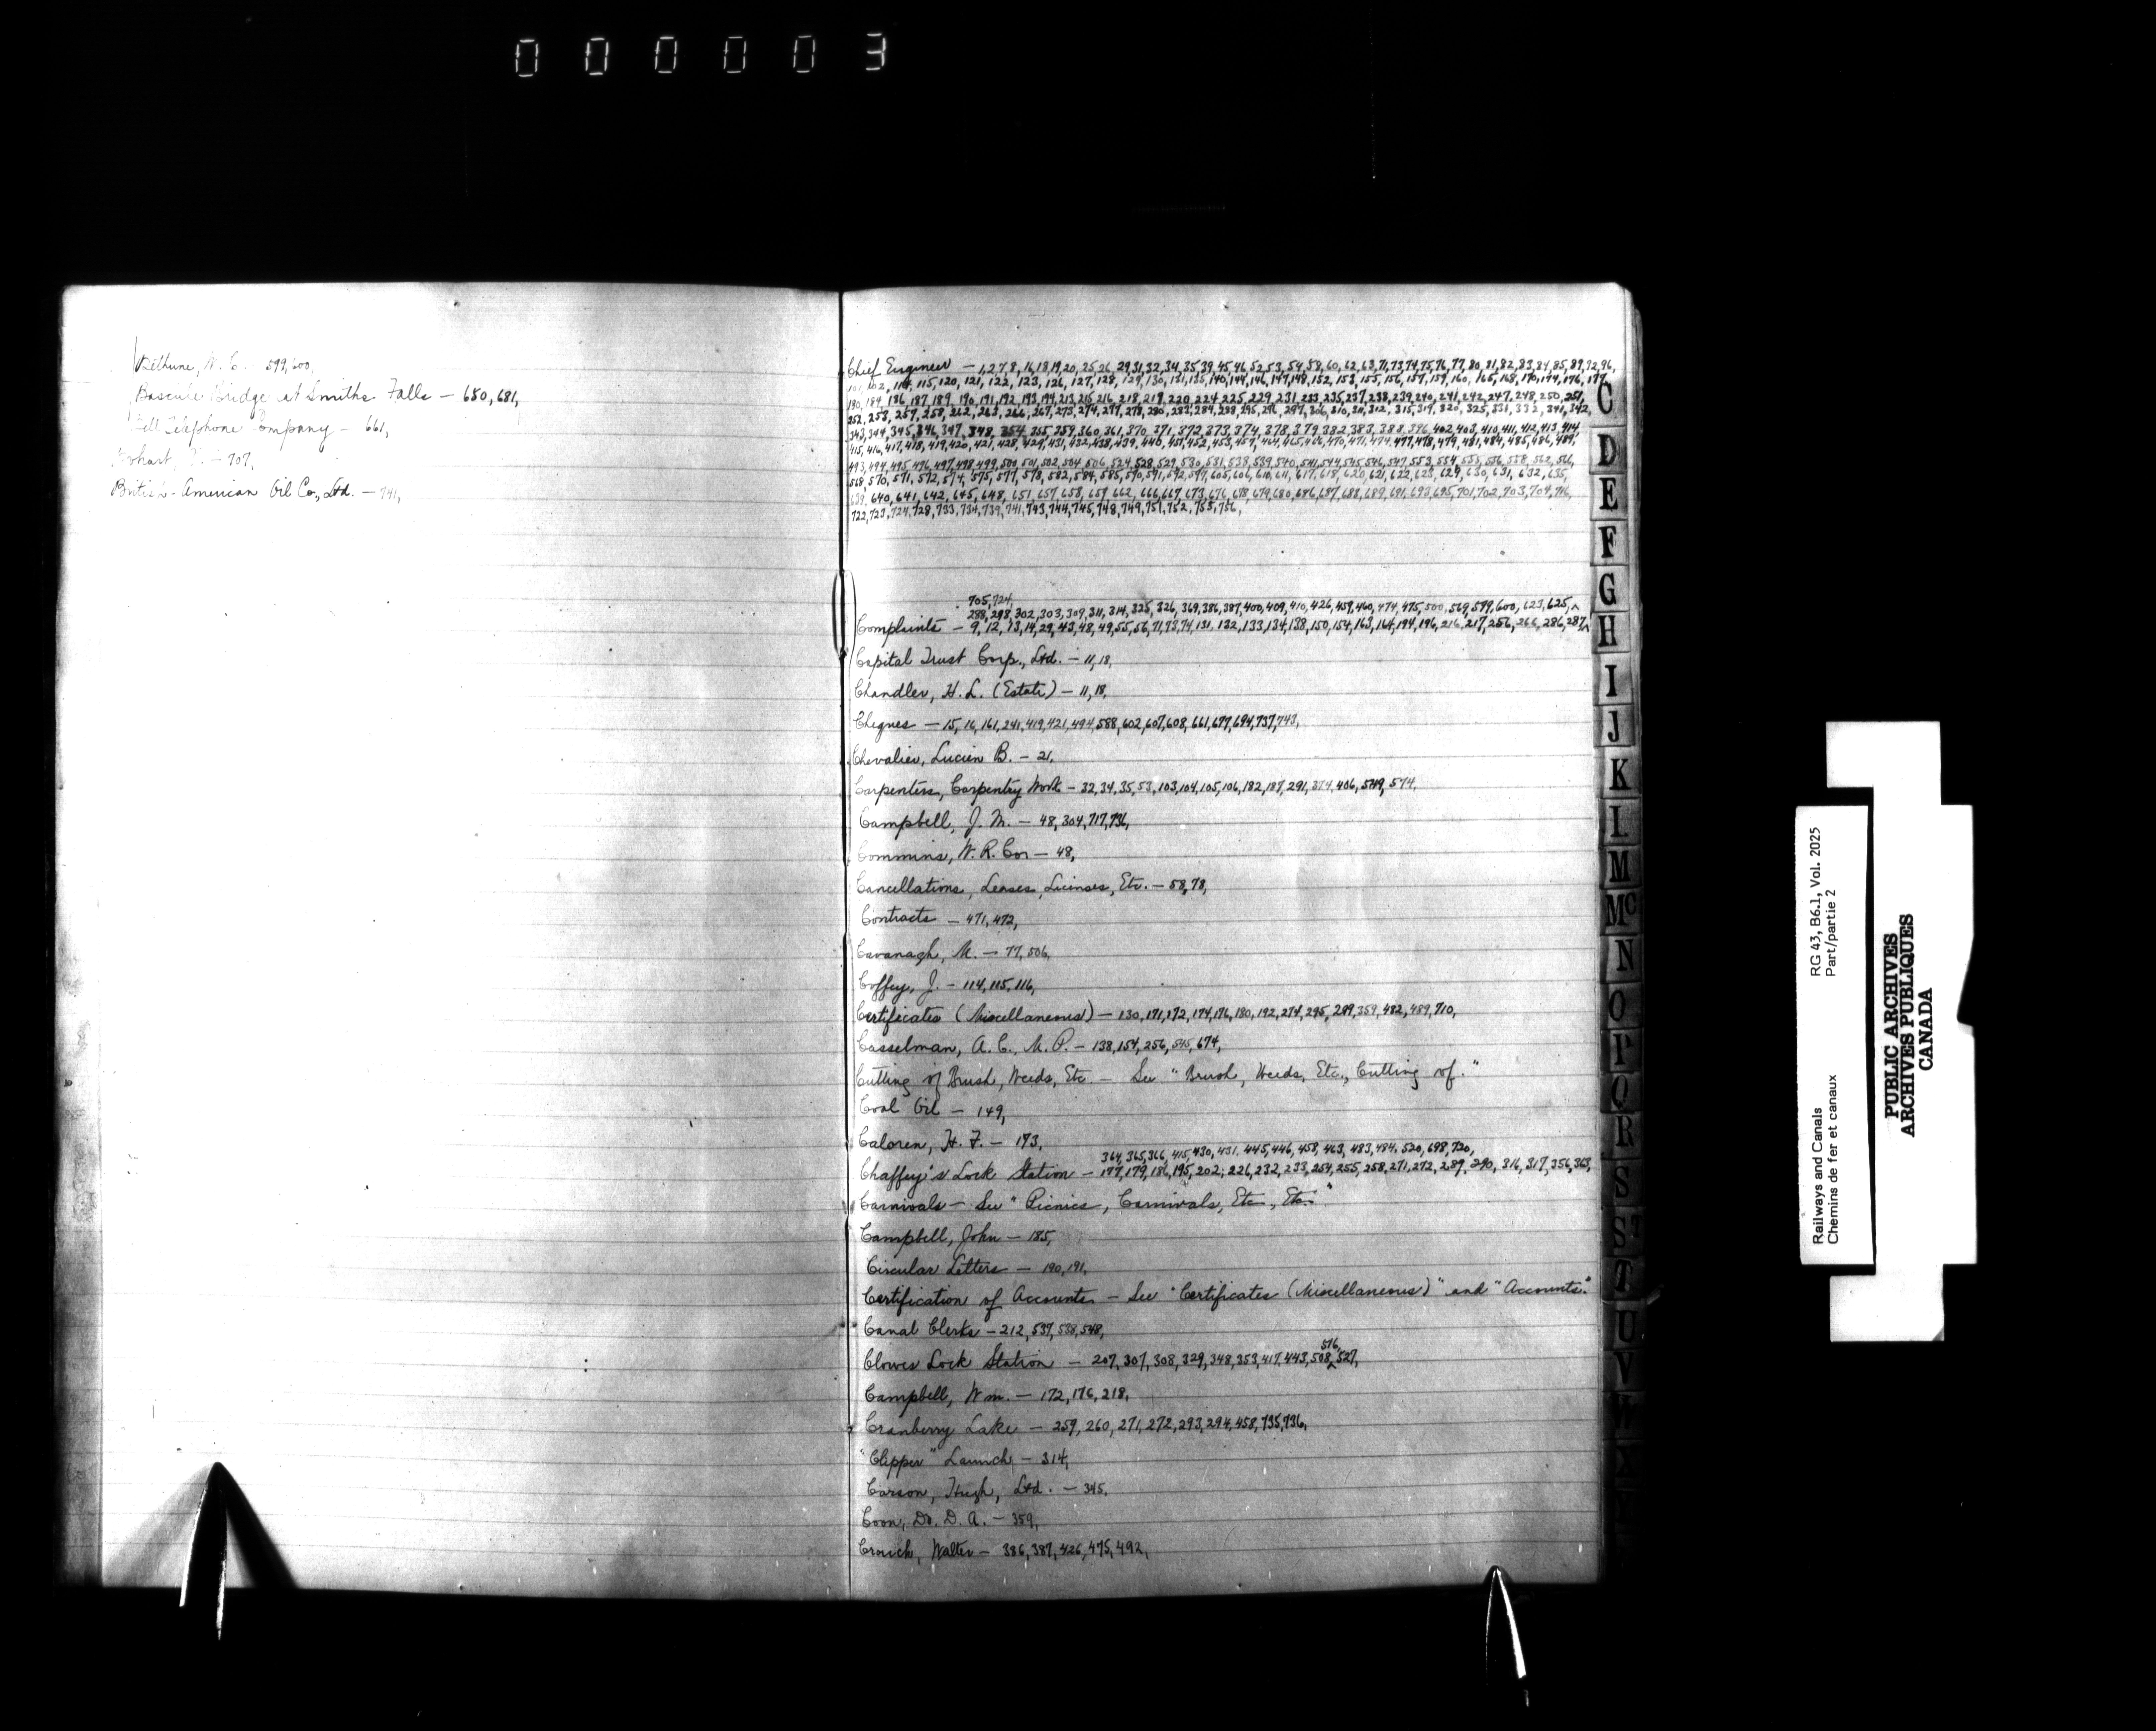 000003
Bethune, W. C. 599,600,
Bascule Bridge at Smiths Falls — 680,681,
Bell Telephone Company — 661,
— 707,
British-American Oil Co., Ltd. — 741,
Chief Engineer — 1,2,7,8,16,18,19,20,25,26,29,31,32,34,35,39,45,46,52,53,54,58,60,62,63,71,73,74,75,76,77,80,81,82,83,84,85,89,92,96,
101,102,115,120,121,122,123,126,127,128,129,130,131,135,140,144,146,147,148,152,153,155,156,157,159,160,165,168,170,174,176,177,
180,184,186,187,189,190,191,192,193,194,213,215,216,218,219,220,224,225,229,231,233,235,237,238,239,240,241,242,247,248,250,251,
252,253,257,258,262,263,266,267,273,274,277,278,280,283,284,288,295,296,297,306,310,311,312,315,319,320,325,331,332,341,342,
343,344,345,346,347,348,354,355,359,360,361,370,371,372,373,374,378,379,382,383,388,396,402,403,410,411,412,413,414,
415,416,417,418,419,420,421,428,429,431,432,438,439,440,451,452,453,457,464,465,466,470,471,474,477,478,479,481,484,485,486,487,
493,494,495,496,497,498,499,500,501,502,504,506,524,528,529,530,531,538,539,540,541,544,545,546,547,553,554,555,556,558,562,566,
568,570,571,572,574,575,577,578,582,584,585,590,591,592,597,605,606,610,611,617,618,620,621,622,623,629,630,631,632,635,
639,640,641,642,645,648,651,657,658,659,662,666,667,673,676,678,679,680,686,687,688,689,691,693,695,701,702,703,704,716,
722,723,724,728,733,734,739,741,743,744,745,748,749,751,752,755,756,
705,724,
288,298,302,303,309,311,314,325,326,369,386,387,400,409,410,426,459,460,474,475,500,569,599,600,623,625,
Complaints — 9,12,13,14,29,43,48,49,55,56,71,73,74,131,132,133,134,138,150,154,163,164,194,196,216,217,256,266,286,287,
Capital Trust Corp., Ltd. — 11,18,
Chandler, H. L. (Estate) — 11,18,
Cheques — 15,16,161,241,419,421,494,588,602,607,608,661,677,694,737,743,
Chevalier, Lucien B. — 21,
Carpenters, Carpentry Work — 32,34,35,53,103,104,105,106,182,187,291,374,406,549,574,
Campbell, J. M. — 48,304,717,736,
Commins, W. R. Cor — 48,
Cancellations, Leases, Licenses, Etc. — 58,78,
Contracts — 471,472,
Cavanagh, M. — 77,506,
Coffey, J. — 114,115,116,
Certificates (Miscellaneous) — 130,171,172,174,176,180,192,274,295,299,359,482,489,710,
Casselman, A. C., M. P. — 138,154,256,545,674,
Cutting of Brush, Weeds, Etc — See "Brush, Weeds, Etc., Cutting of."
Coal Oil — 149,
Caloren, H. F. — 173,
364,365,366,415,430,431,445,446,458,463,483,484,520,698,720,
Chaffey's Lock Station — 177,179,186,195,202,226,232,233,254,255,258,271,272,289,290,316,317,356,363,
Carnivals — See "Picnics, Carnivals, Etc., Etc."
Campbell, John — 185,
Circular Letters — 190,191,
Certification of Accounts — See "Certificates (Miscellaneous)" and "Accounts."
Canal Clerks — 212,537,538,548,
516,
Clowes Lock Station — 207,307,308,329,348,353,417,443,508,527,
Campbell, Wm. — 172,176,218,
Cranberry Lake — 259,260,271,272,293,294,458,735,736,
"Clipper" Launch — 314,
Carson, Hugh, Ltd. — 345,
Coon, Dr. D. A. — 359,
Crouch, Walter — 386,387,426,475,492,
C
D
E
F
G
H
I
J
K
L
M
Mc
N
O
P
Q
R
S
S
T
U
V
W
Railways and Canals RG 43, B6.1, Vol. 2025
Chemins de fer et canaux Part/partie 2
PUBLIC ARCHIVES
ARCHIVES PUBLIQUES
CANADA